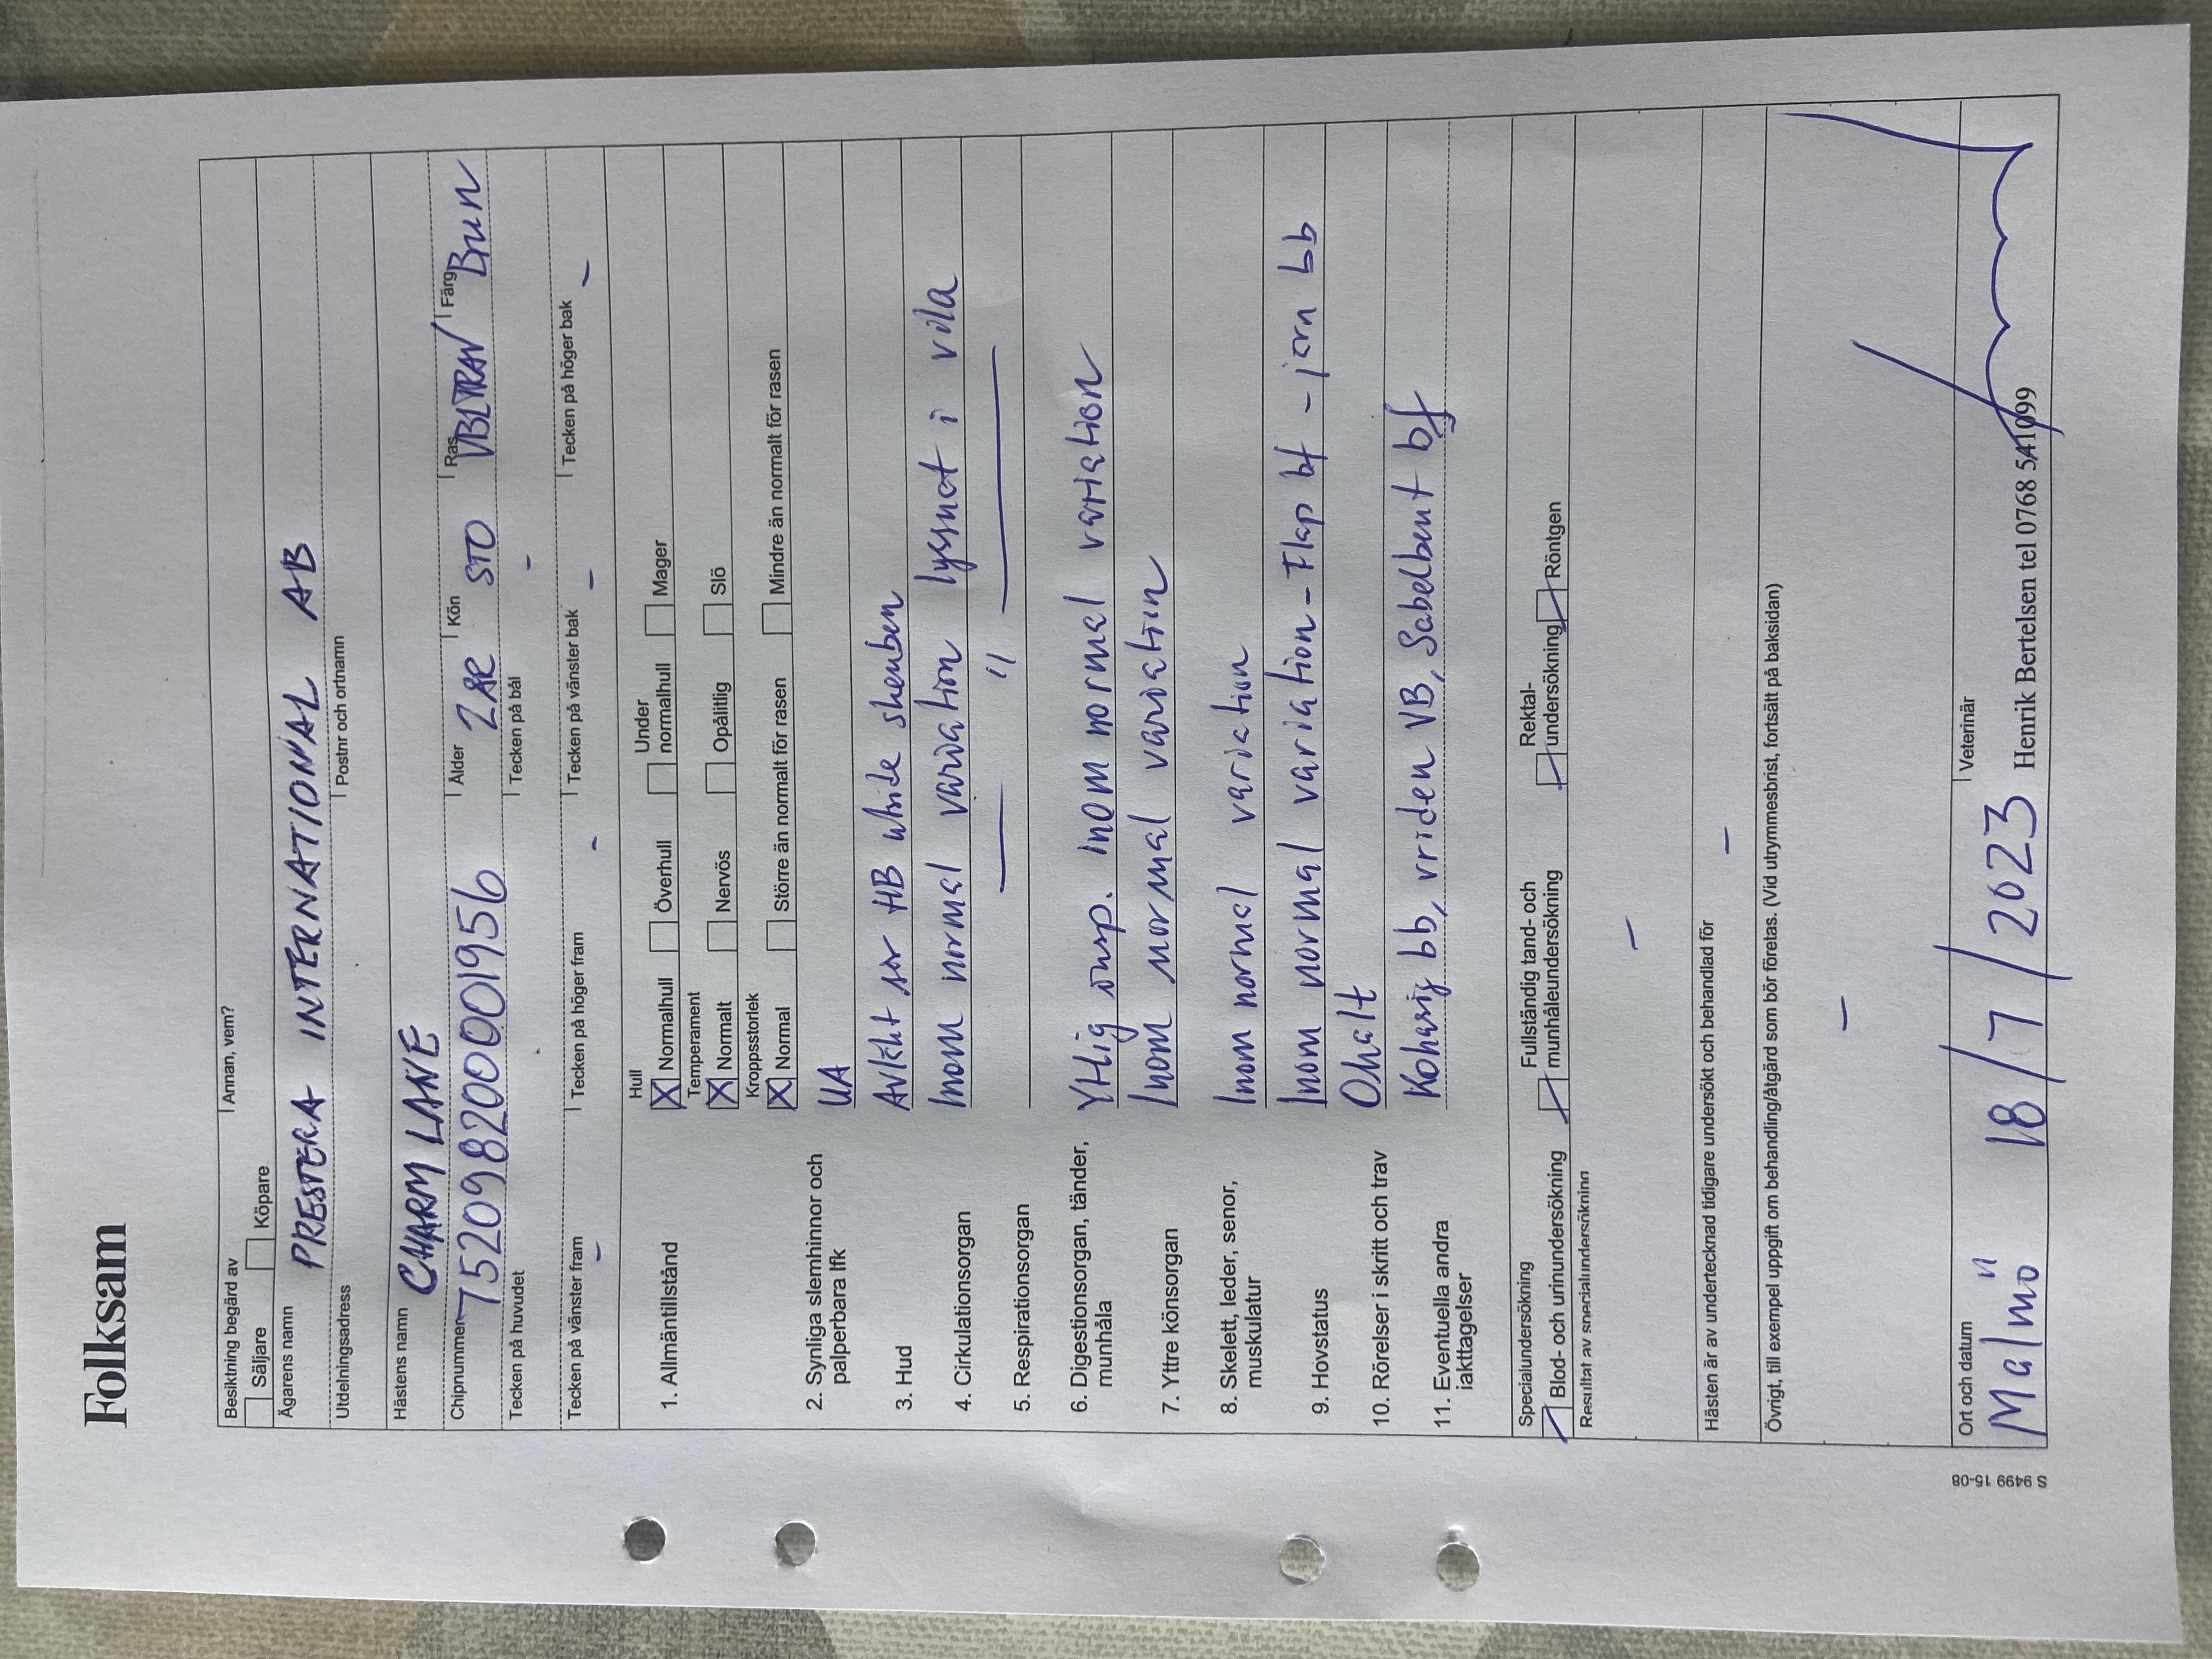 Folksam
Besiktning begärd av
Säljare Köpare Annan, vem?
Ägarens namn
PRESTERA INTERNATIONAL AB
Utdelningsadress Postnr och ortnamn
Hästens namn
CHARM LANE
Chipnummer Ålder Kön Ras Färg
752098200001956 2 ÅR STO VBLTRAV Brun
Tecken på huvudet Tecken på bål
-
Tecken på vänster fram Tecken på höger fram Tecken på vänster bak Tecken på höger bak
- - - -
1. Allmäntillstånd
Hull
X Normalhull Överhull Under normalhull Mager
Temperament
X Normalt Nervös Opålitlig Slö
Kroppsstorlek
X Normal Större än normalt för rasen Mindre än normalt för rasen
2. Synliga slemhinnor och
palperbara lfk
UA
3. Hud
Avläkt sår HB utsida skenben
4. Cirkulationsorgan
Inom normal variation lyssnat i vila
5. Respirationsorgan
— " —
6. Digestionsorgan, tänder,
munhåla
Ytlig insp. inom normal variation
7. Yttre könsorgan
Inom normal variation
8. Skelett, leder, senor,
muskulatur
Inom normal variation
9. Hovstatus
Inom normal variation - Flap bf - järn bb
10. Rörelser i skritt och trav
Ohalt
11. Eventuella andra
iakttagelser
Kohasig bb, vriden VB, Sabelbent bf
Specialundersökning
Blod- och urinundersökning
Fullständig tand- och
munhåleundersökning
Rektal-
undersökning
Röntgen
Resultat av specialundersökning
-
Hästen är av undertecknad tidigare undersökt och behandlad för
-
Övrigt, till exempel uppgift om behandling/åtgärd som bör företas. (Vid utrymmesbrist, fortsätt på baksidan)
-
Ort och datum Veterinär
Malmö 18/7/2023 Henrik Bertelsen tel 0768 541099
S 9499 15-08